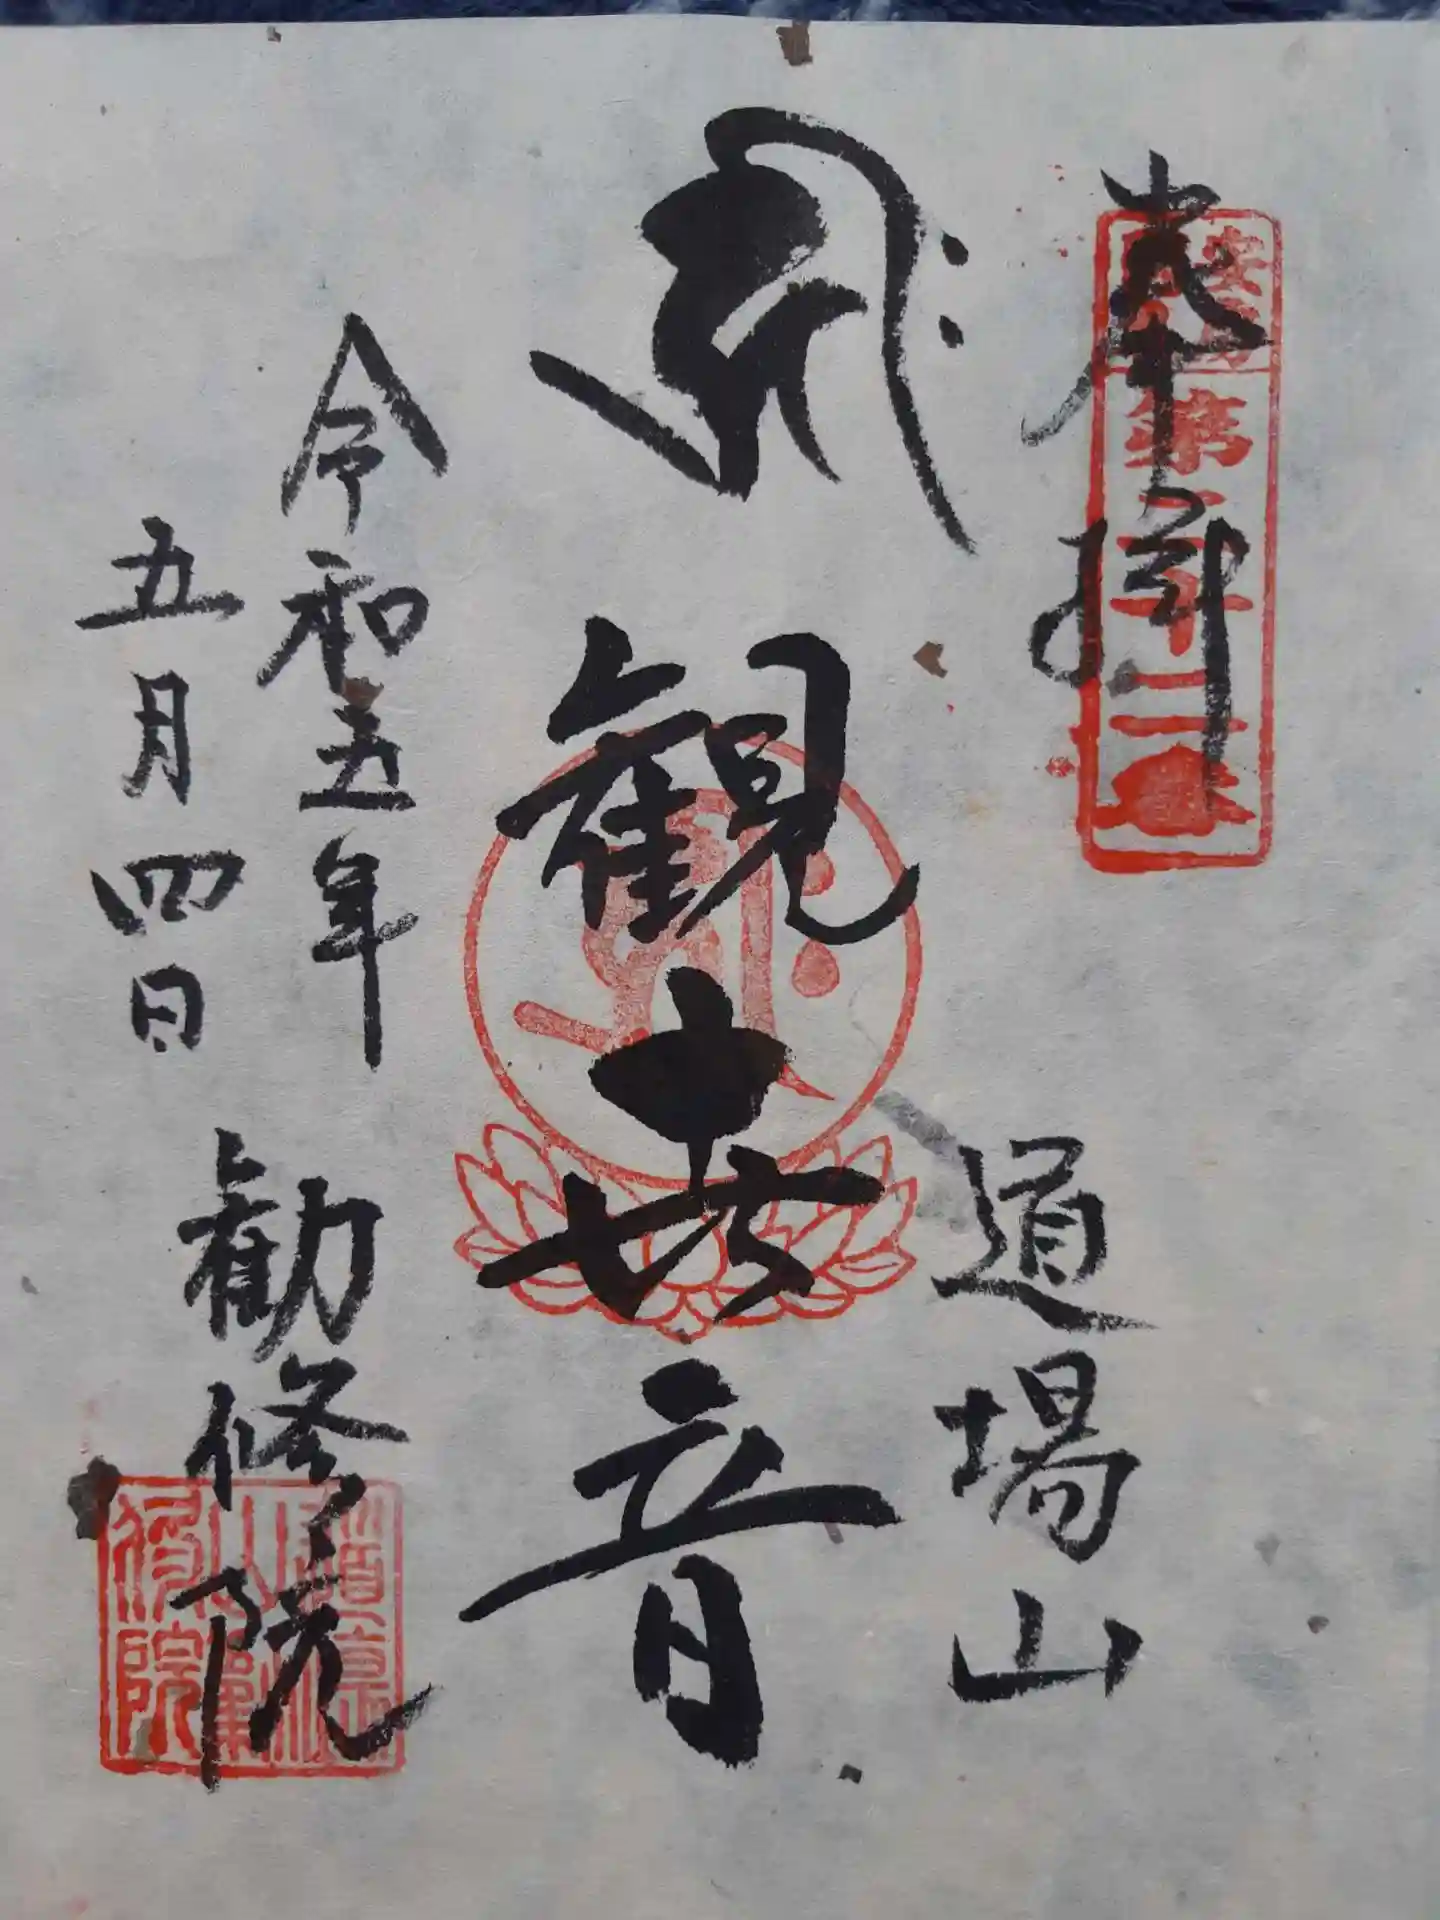 奉拝
安房
第二十二番
道場山
観世音
令和五年
五月四日
勧修院